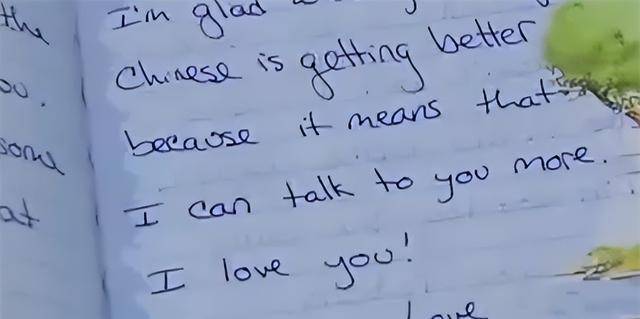 the
ou.
some
at
I'm glad
Chinese is getting better
because it means that
I can talk to you more.
I love you!
Love